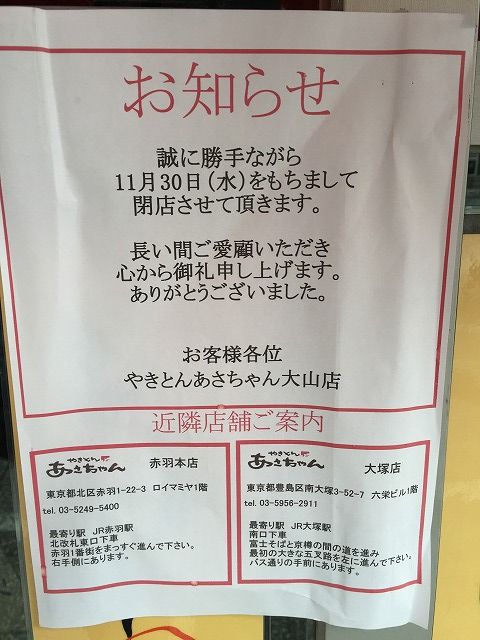 お知らせ
誠に勝手ながら
11月30日(水)をもちまして
閉店させて頂きます。
長い間ご愛顧いただき
心から御礼申し上げます。
ありがとうございました。
お客様各位
やきとんあさちゃん大山店
近隣店舗ご案内
やきとん
あさちゃん 赤羽本店
東京都北区赤羽1-22-3 ロイマミヤ1階
tel. 03-5249-5400
最寄り駅 JR赤羽駅
北改札東口下車
赤羽1番街をまっすぐ進んで下さい。
右手側にあります。
やきとん
あさちゃん 大塚店
東京都豊島区南大塚3-52-7 六栄ビル1階
tel. 03-5956-2911
最寄り駅 JR大塚駅
南口下車
富士そばと京樽の間の道を進み
最初の大きな五叉路を左に進んで下さい。
バス通りの手前にあります。